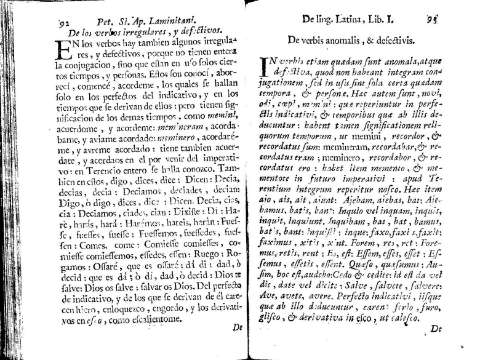 92 Pet. Si. Ap. Laminitani.
De los verbos irregulares, y defectivos.
EN los verbos hay tambien algunos irregula-
res, y defectivos, porque no tienen entera
la conjugacion, sino que estàn en uso solos cier-
tos tiempos, y personas. Estos son conocì, abor-
recì, comencè, acordème, los quales se hallan
solo en los perfectos del indicativo, y en los
tiempos que se derivan de ellos: pero tienen sig-
nificacion de los demas tiempos, como meminì,
acuerdome, y acordeme: memineram, acorda-
bame, y aviame acordado: meminero, acordarè-
me, y avreme acordado: tiene tambien acuer-
date, y acordaos en el por venir del imperati-
vo: en Terencio entero se halla conozco. Tam-
bien estos, digo, dices, dice: Dicen: Decia,
decias, decia: Deciamos, deciades, decian:
Digo, ò digo, dices: dice: Dicen. Decia, cias,
cia: Deciamos, ciades, cian: Dixiste: Di: Ha-
rè, haràs, harà: Harèmos, hareis, haràn: Fues-
se, fuesses, fuesse: Fuessemos, fuessedes, fues-
sen: Comes, come: Comiesse comiesses, co-
miesse comiessemos, essedes, essen: Ruego: Ro-
gamos: Ossarè, que es ossarè: dà dì: dad, ò
decid: que es dà ò dì, dad, ò decid: Dios te
salve: Dios os salve: salvar os Dios. Del perfecto
de indicativo, y de los que se derivan de èl care-
cen hiero, enloquezco, engordo, y los derivati-
vos en esco, como escalientome.
De
De ling. Latina, Lib. I. 93
De verbis anomalis, & defectivis.
IN verbis etiam quædam sunt anomala, atque
defectiva, quod non habeant integram con-
jugationem, sed in usu sint sola certa quædam
tempora, & personæ. Hæc autem sunt, novi,
odi, cœpi, memini: quæ reperiuntur in perfe-
ctis indicativi, & temporibus quæ ab illis de-
ducuntur: habent tamen significationem reli-
quorum temporum, ut memini, recordor, &
recordatus sum: memineram, recordabar, & re-
cordatus eram; meminero, recordabor, & re-
cordatus ero: habet item memento, & me-
mentore in futuro imperativi: apud Te-
rentium integrum reperitur nosco. Hæc item
aio, ais, ait, aiunt: Ajebam, aiebas, bat: Aie-
bamus, batis, bant: Inquio vel inquam, inquis,
inquit, inquiunt. Inquibam, bas, bat, bamus,
batis, bant: Inquisti: inque: faxo, faxis, faxit:
faximus, xitis, xint. Forem, res, ret: Fore-
mus, retis, rent: Es, est: Essem, esses, esset: Es-
semus, essetis, essent. Quæso, quæsumus: Au-
sim, hoc est, audebo: Cedo & cedite: id est da vel
dic, date vel dicite: Salve, salvete, salvere:
Ave, avete, avere. Perfecto indicativi, iisque
quæ ab illo deducuntur, carent ferio, furo,
glisco, & derivativa in esco, ut calesco.
De